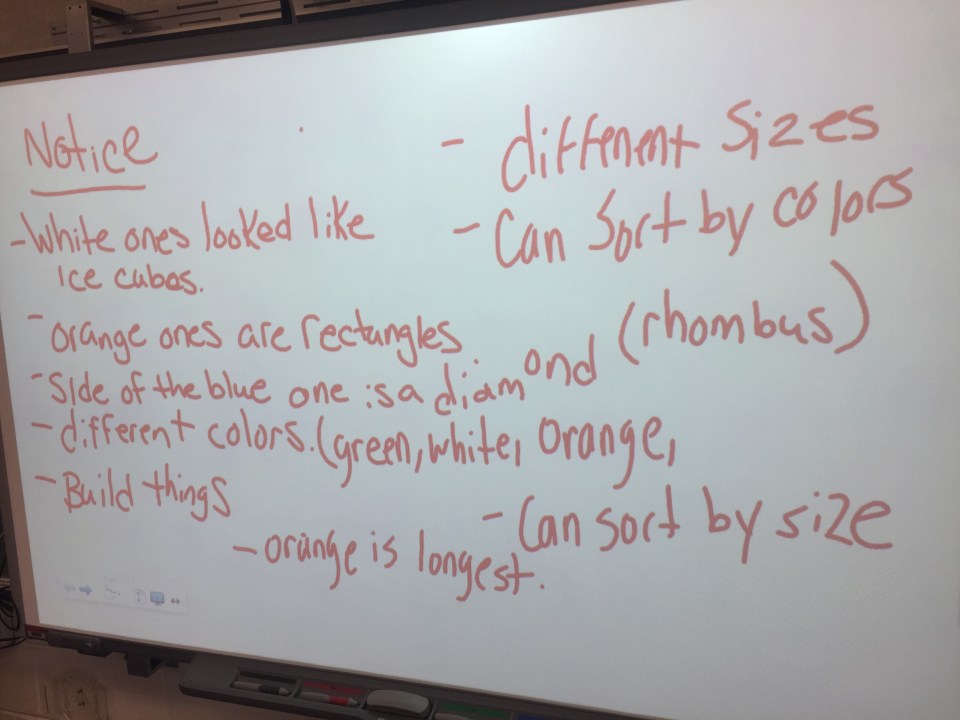 Notice
- White ones looked like
ice cubes.
- orange ones are rectangles
- Side of the blue one is a diamond (rhombus)
- different colors. (green, white, orange,
- Build things
- orange is longest.
- different sizes
- Can Sort by colors
- Can sort by size